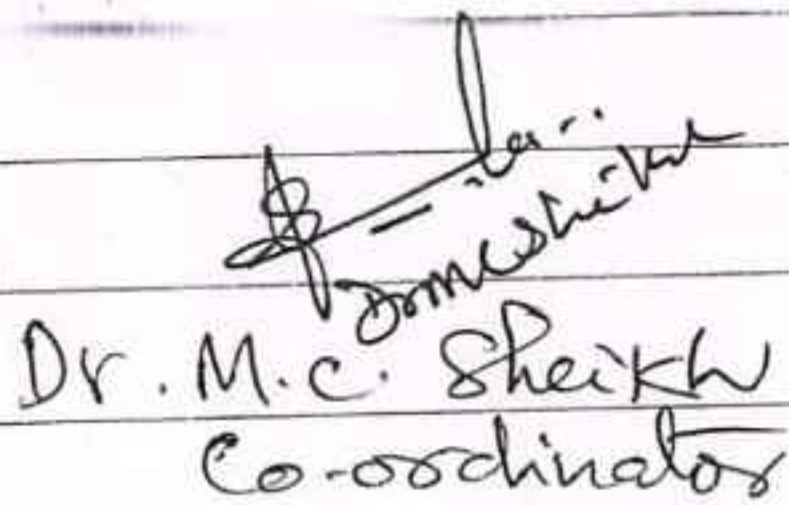 Dr M C Sheikh
Dr. M.C. Sheikh
Co-ordinator